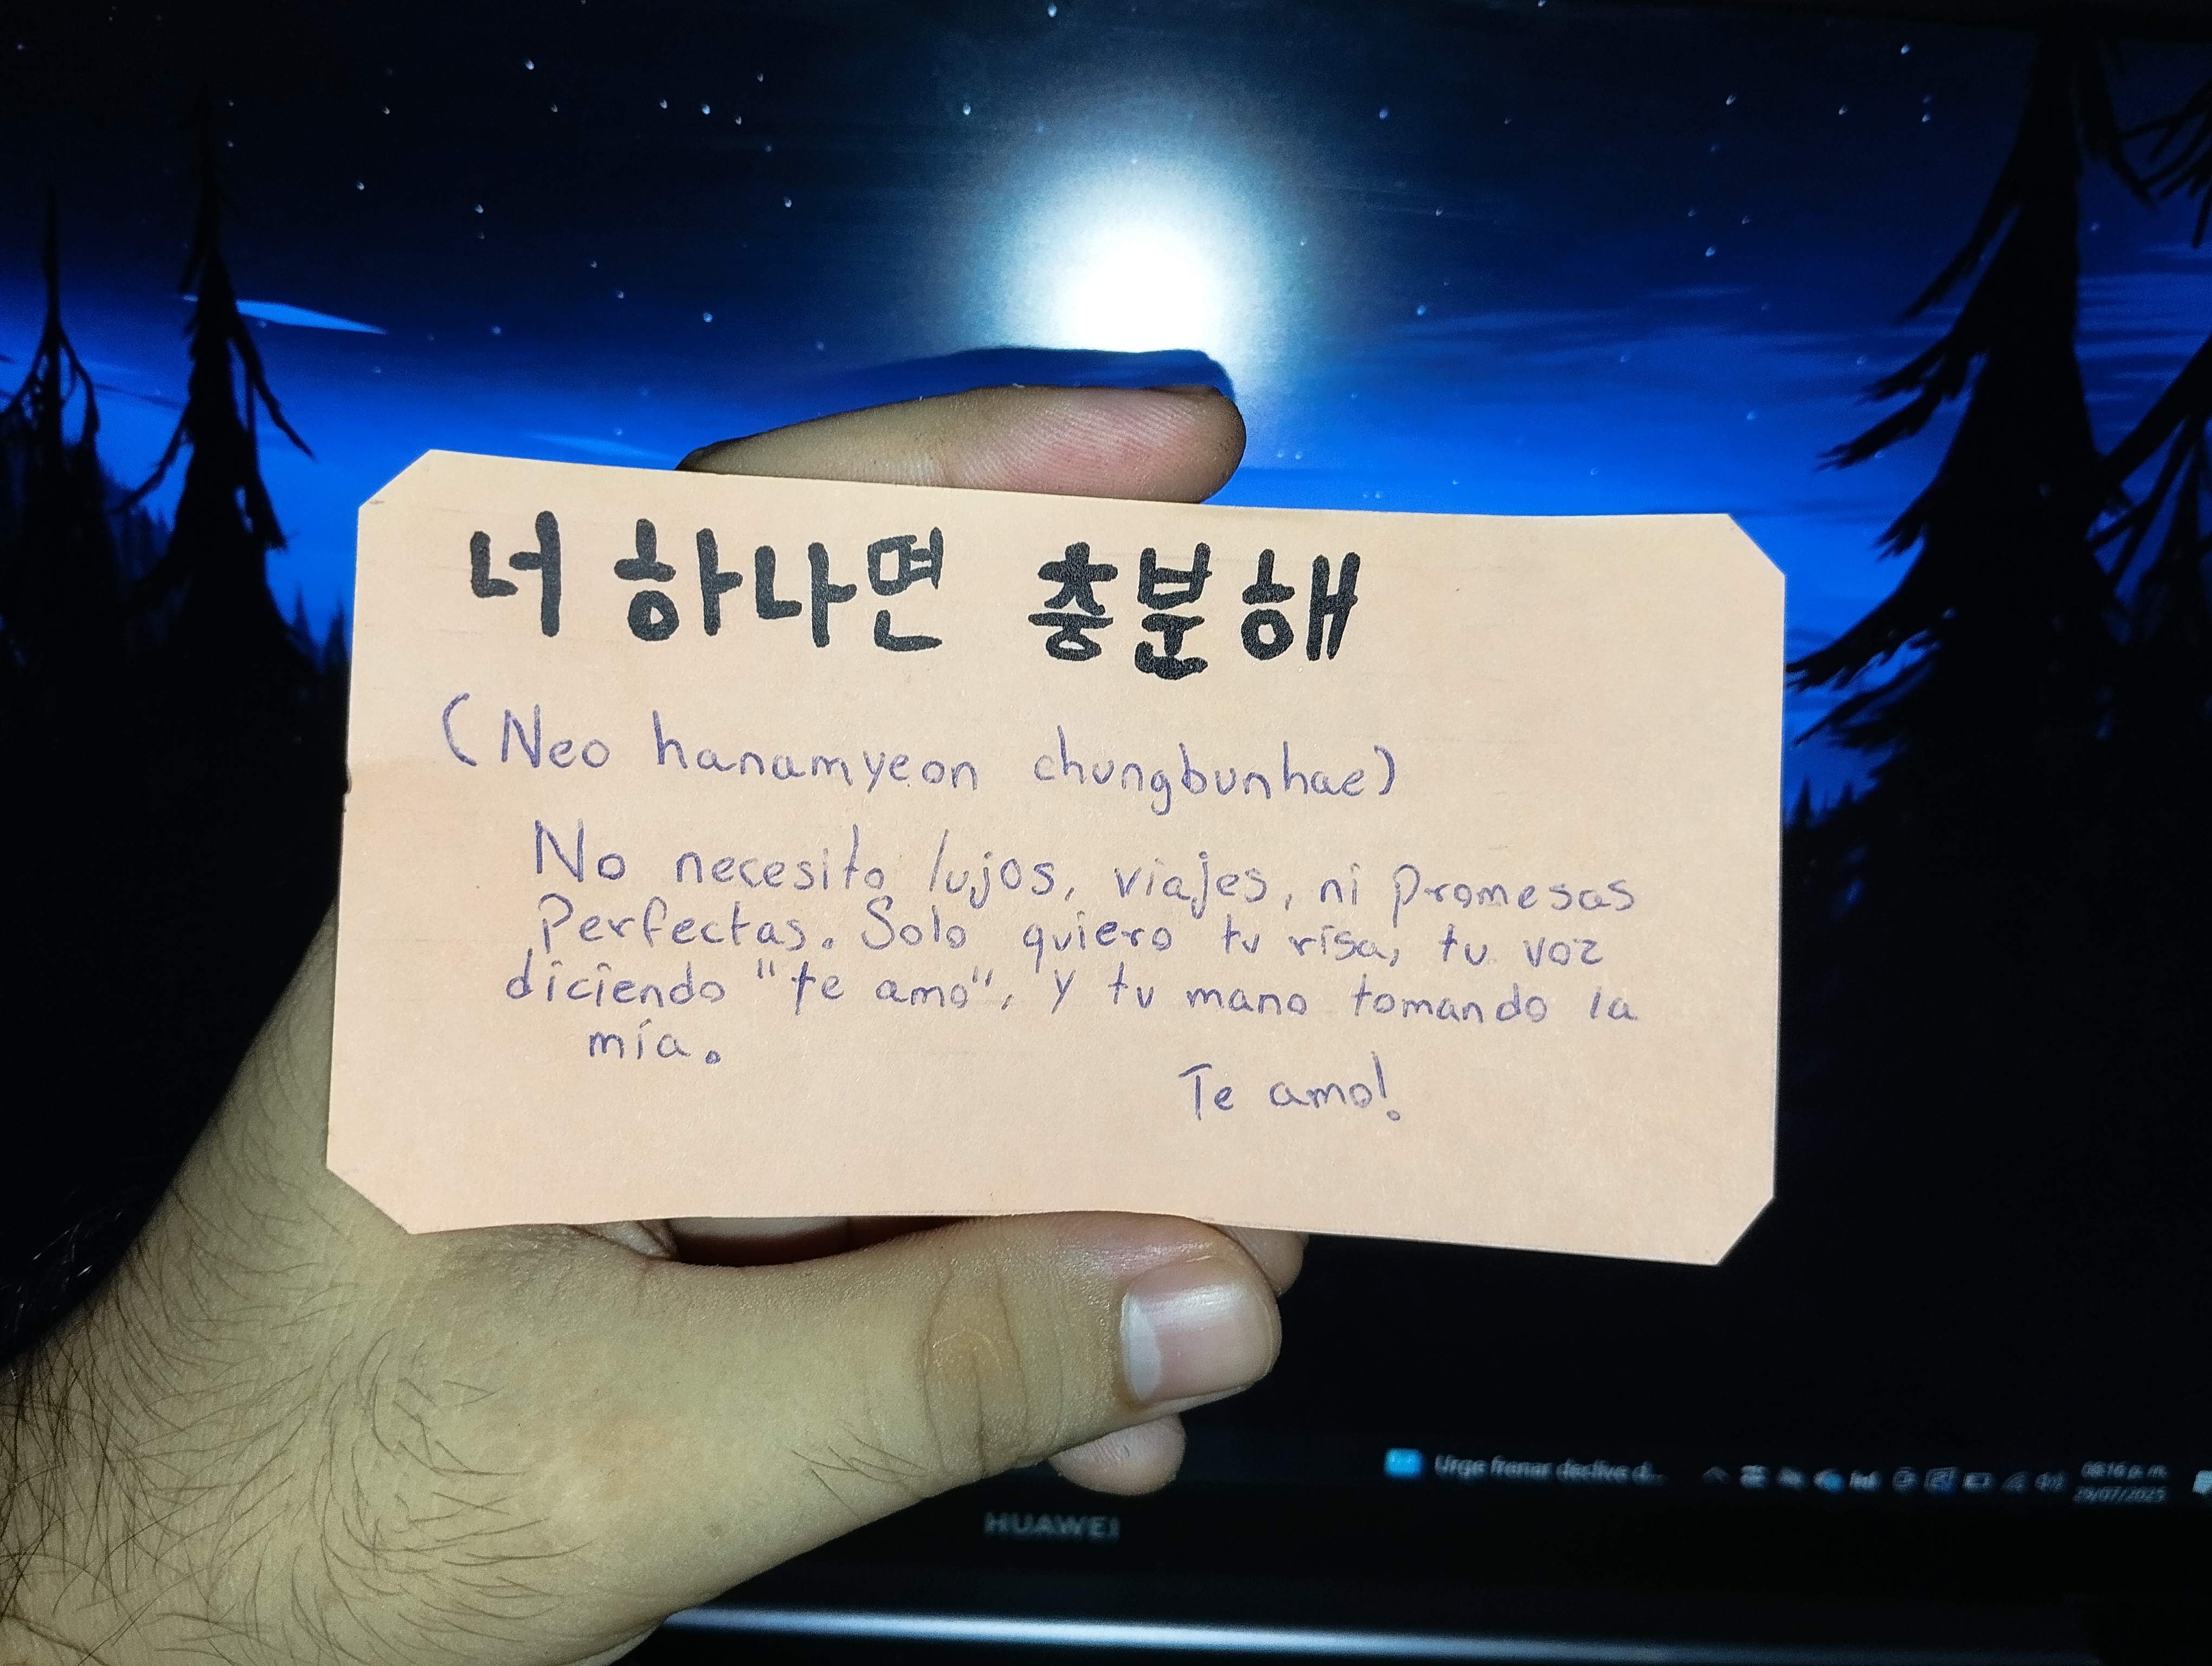 너 하나면 충분해
(Neo hanamyeon chungbunhae)
No necesito lujos, viajes, ni promesas
Perfectas. Solo quiero tu risa, tu voz
diciendo "te amo", y tu mano tomando la
mía.
Te amo!
Urge frenar declive d...
08:16 p. m.
29/07/2025
HUAWEI